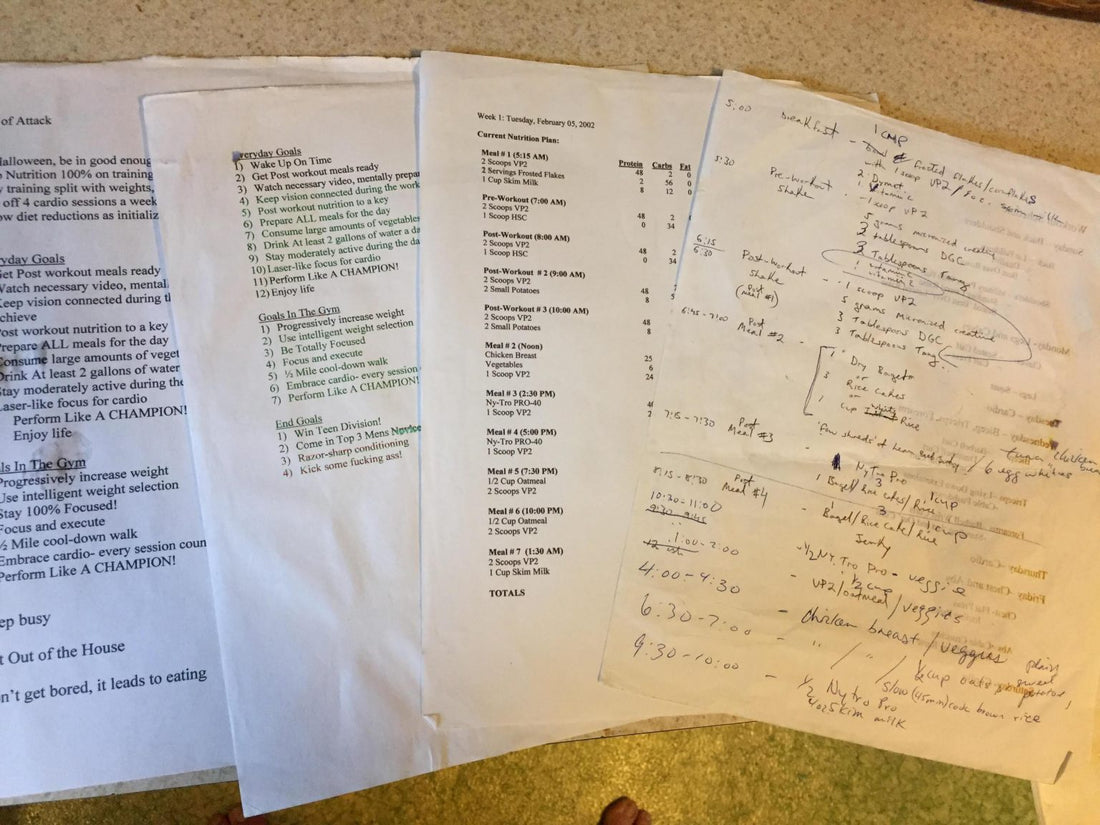 of Attack
alloween, be in good enoug
Nutrition 100% on training
training split with weights,
off 4 cardio sessions a week
ow diet reductions as initializ
ryday Goals
Get Post workout meals ready
Watch necessary video, mental
Keep vision connected during t
chieve
Post workout nutrition to a key
Prepare ALL meals for the day
Consume large amounts of veget
Drink At least 2 gallons of water
Stay moderately active during the
Laser-like focus for cardio
Perform Like A CHAMPION!
Enjoy life
ls In The Gym
Progressively increase weight
Use intelligent weight selection
Stay 100% Focused!
Focus and execute
½ Mile cool-down walk
Embrace cardio- every session coun
Perform Like A CHAMPION!
ep busy
t Out of the House
n't get bored, it leads to eating
Everyday Goals
1) Wake Up On Time
2) Get Post workout meals ready
3) Watch necessary video, mentally prepa
4) Keep vision connected during the work
5) Post workout nutrition to a key
6) Prepare ALL meals for the day
7) Consume large amounts of vegetables
8) Drink At least 2 gallons of water a da
9) Stay moderately active during the da
10) Laser-like focus for cardio
11) Perform Like A CHAMPION!
12) Enjoy life
Goals In The Gym
1) Progressively increase weight
2) Use intelligent weight selection
3) Be Totally Focused
4) Focus and execute
5) ½ Mile cool-down walk
6) Embrace cardio- every session
7) Perform Like A CHAMPION!
End Goals
1) Win Teen Division!
2) Come in Top 3 Mens Novice
3) Razor-sharp conditioning
4) Kick some fucking ass!
Week 1: Tuesday, February 05, 2002
Current Nutrition Plan:
Protein Carbs Fat
Meal # 1 (5:15 AM)
2 Scoops VP2 48 2 0
2 Servings Frosted Flakes 2 56 0
1 Cup Skim Milk 8 12 0
Pre-Workout (7:00 AM)
2 Scoops VP2 48 2
1 Scoop HSC 0 34
Post-Workout (8:00 AM)
2 Scoops VP2 48 2
1 Scoop HSC 0 34
Post-Workout # 2 (9:00 AM)
2 Scoops VP2 48
2 Small Potatoes 8
Post-Workout # 3 (10:00 AM)
2 Scoops VP2 48
2 Small Potatoes 8
Meal # 2 (Noon)
Chicken Breast 25
Vegetables 6
1 Scoop VP2 24
Meal # 3 (2:30 PM)
Ny-Tro PRO-40
1 Scoop VP2 2
Meal # 4 (5:00 PM)
Ny-Tro PRO-40
1 Scoop VP2
Meal # 5 (7:30 PM)
1/2 Cup Oatmeal
2 Scoops VP2
Meal # 6 (10:00 PM)
1/2 Cup Oatmeal
2 Scoops VP2
Meal # 7 (1:30 AM)
2 Scoops VP2
1 Cup Skim Milk
TOTALS
5:00 breakfast - 1 cup
frosted flakes/cornflakes
with 1 scoop VP2
5:30 Pre-workout shake
- 1 scoop VP2
5 grams micronized creatine
2 tablespoons DGC
3 Tablespoons Tang
6:15
6:30 Post-workout shake (Post Meal #1)
- 1 scoop VP2
5 grams micronized creatine
3 Tablespoons DGC
3 Tablespoons Tang
6:45-7:00 Post Meal #2 -
1 Dry Bagel
or
3 Rice cakes
or
1 cup Rice
7:15-7:30 Post Meal #3
chicken
6 egg whites
NyTro Pro
1 Bagel/3 Rice cakes/1 cup Rice
8:15-8:30 Post Meal #4
- 1 Bagel/3 Rice cake/1 cup Rice
Jerky
10:30-11:00
- 1/2 Ny-Tro Pro - veggies
1:00-2:00
- VP2/ 1/2 cup oatmeal/veggies
4:00-4:30
- Chicken breast/veggies
6:30-7:00
- " / " / 1/2 cup oats
slow (45min) cook brown rice
9:30-10:00
- 1/2 Nytro Pro
skim milk